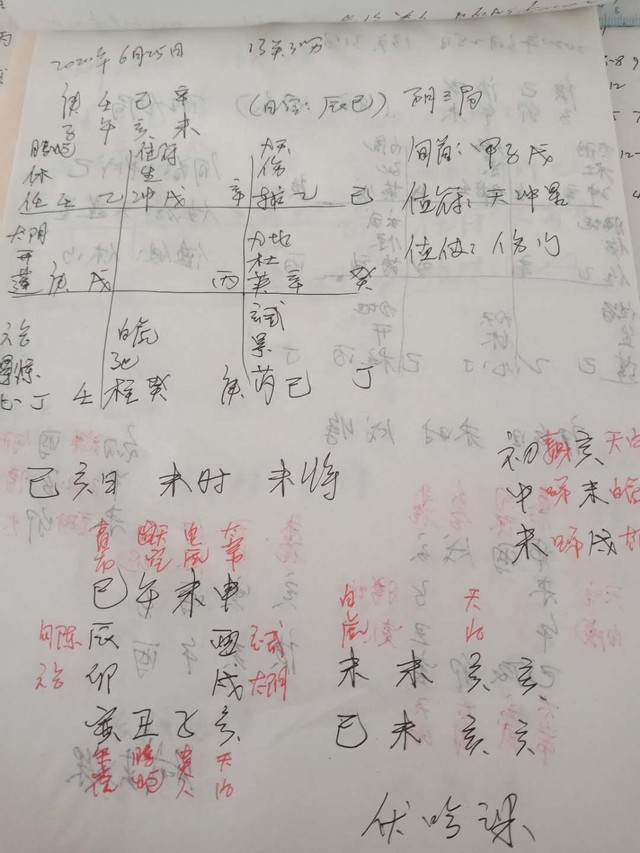 2020年6月25日
庚 壬 己 辛
子 午 亥 未
(日空: 辰巳) 阴三局
旬首: 甲子戊
值符: 天冲星
值使: 伤门
腾蛇 值符 九天
休 生 伤
任 壬 乙 冲 戊 辛 辅 乙 己
太阴 九地
开 杜
蓬 庚 戊 丙 英 辛 癸
六合 白虎 玄武
惊 死 景
心 丁 壬 柱 癸 庚 芮 己 丁
己亥日 未时 未将
初 亥
中 未
末 戌
天后
白虎
青龙 天空 白虎 太常
巳 午 未 申
勾陈 辰 酉 玄武
六合 卯 戌 太阴
寅 丑 子 亥
朱雀 腾蛇 贵人 天后
白虎 天后
未 未 亥 亥
己 未 亥 亥
伏吟课